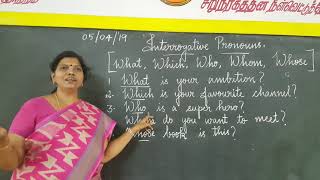 05/04/19
Interrogative Pronouns.
[What, Which, Who, Whom, Whose]
1. What is your ambition?
2. Which is your favourite channel?
3. Who is a super hero?
Whom do you want to meet?
Whose book is this?